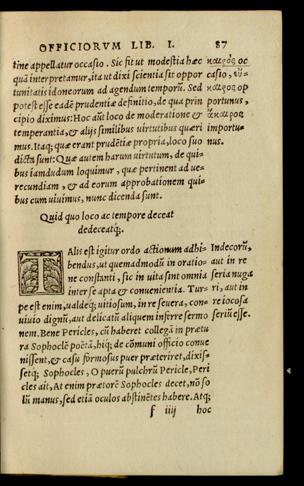 OFFICIORVM LIB. I. 87
tine appellatur occasio. Sic fit ut modestia hæc
quā interpretamur, ita ut dixi scientia sit oppor
tunitatis idoneorum ad agendum temporū. Sed
potest esse eadē prudentiæ definitio, de qua prin
cipio diximus: Hoc aūt loco de moderatione &
temperantia, & alijs similibus uirtutibus quæri
mus. Itaq; quæ erant prudētiæ propria, suo loco
dicta sunt: Quæ autem harum uirtutum, de qui-
bus iamdudum loquimur, quæ pertinent ad ue-
recundiam, & ad eorum approbationem qui-
bus cum uiuimus, nunc dicenda sunt.
καιρὸς oc
casio, εὔ-
καιρος op
portunus,
ἄκαιρος
importu-
nus.
Quid quo loco ac tempore deceat
dedeceatq;.
TAlis est igitur ordo actionum adhi-
bendus, ut quemadmodū in oratio-
ne constanti, sic in uita sint omnia
inter se apta & conuenientia. Tur-
pe est enim, ualdeq; uitiosum, in re seuera, con-
uiuio dignū, aut delicatū aliquem inferre sermo
nem. Bene Pericles, cū haberet collegā in prætu
ra Sophoclē poëtā, hiq; de cōmuni officio conue
nissent, & casu formosus puer præteriret, dixis-
setq; Sophocles, O puerū pulchrū Pericle, Peri
cles ait, At enim prætorē Sophocles decet, nō so
lū manus, sed etiā oculos abstinētes habere. Atq;
Indecorū,
aut in re
seria nuga
ri, aut in
re iocosa
seriū esse.
f iiij hoc